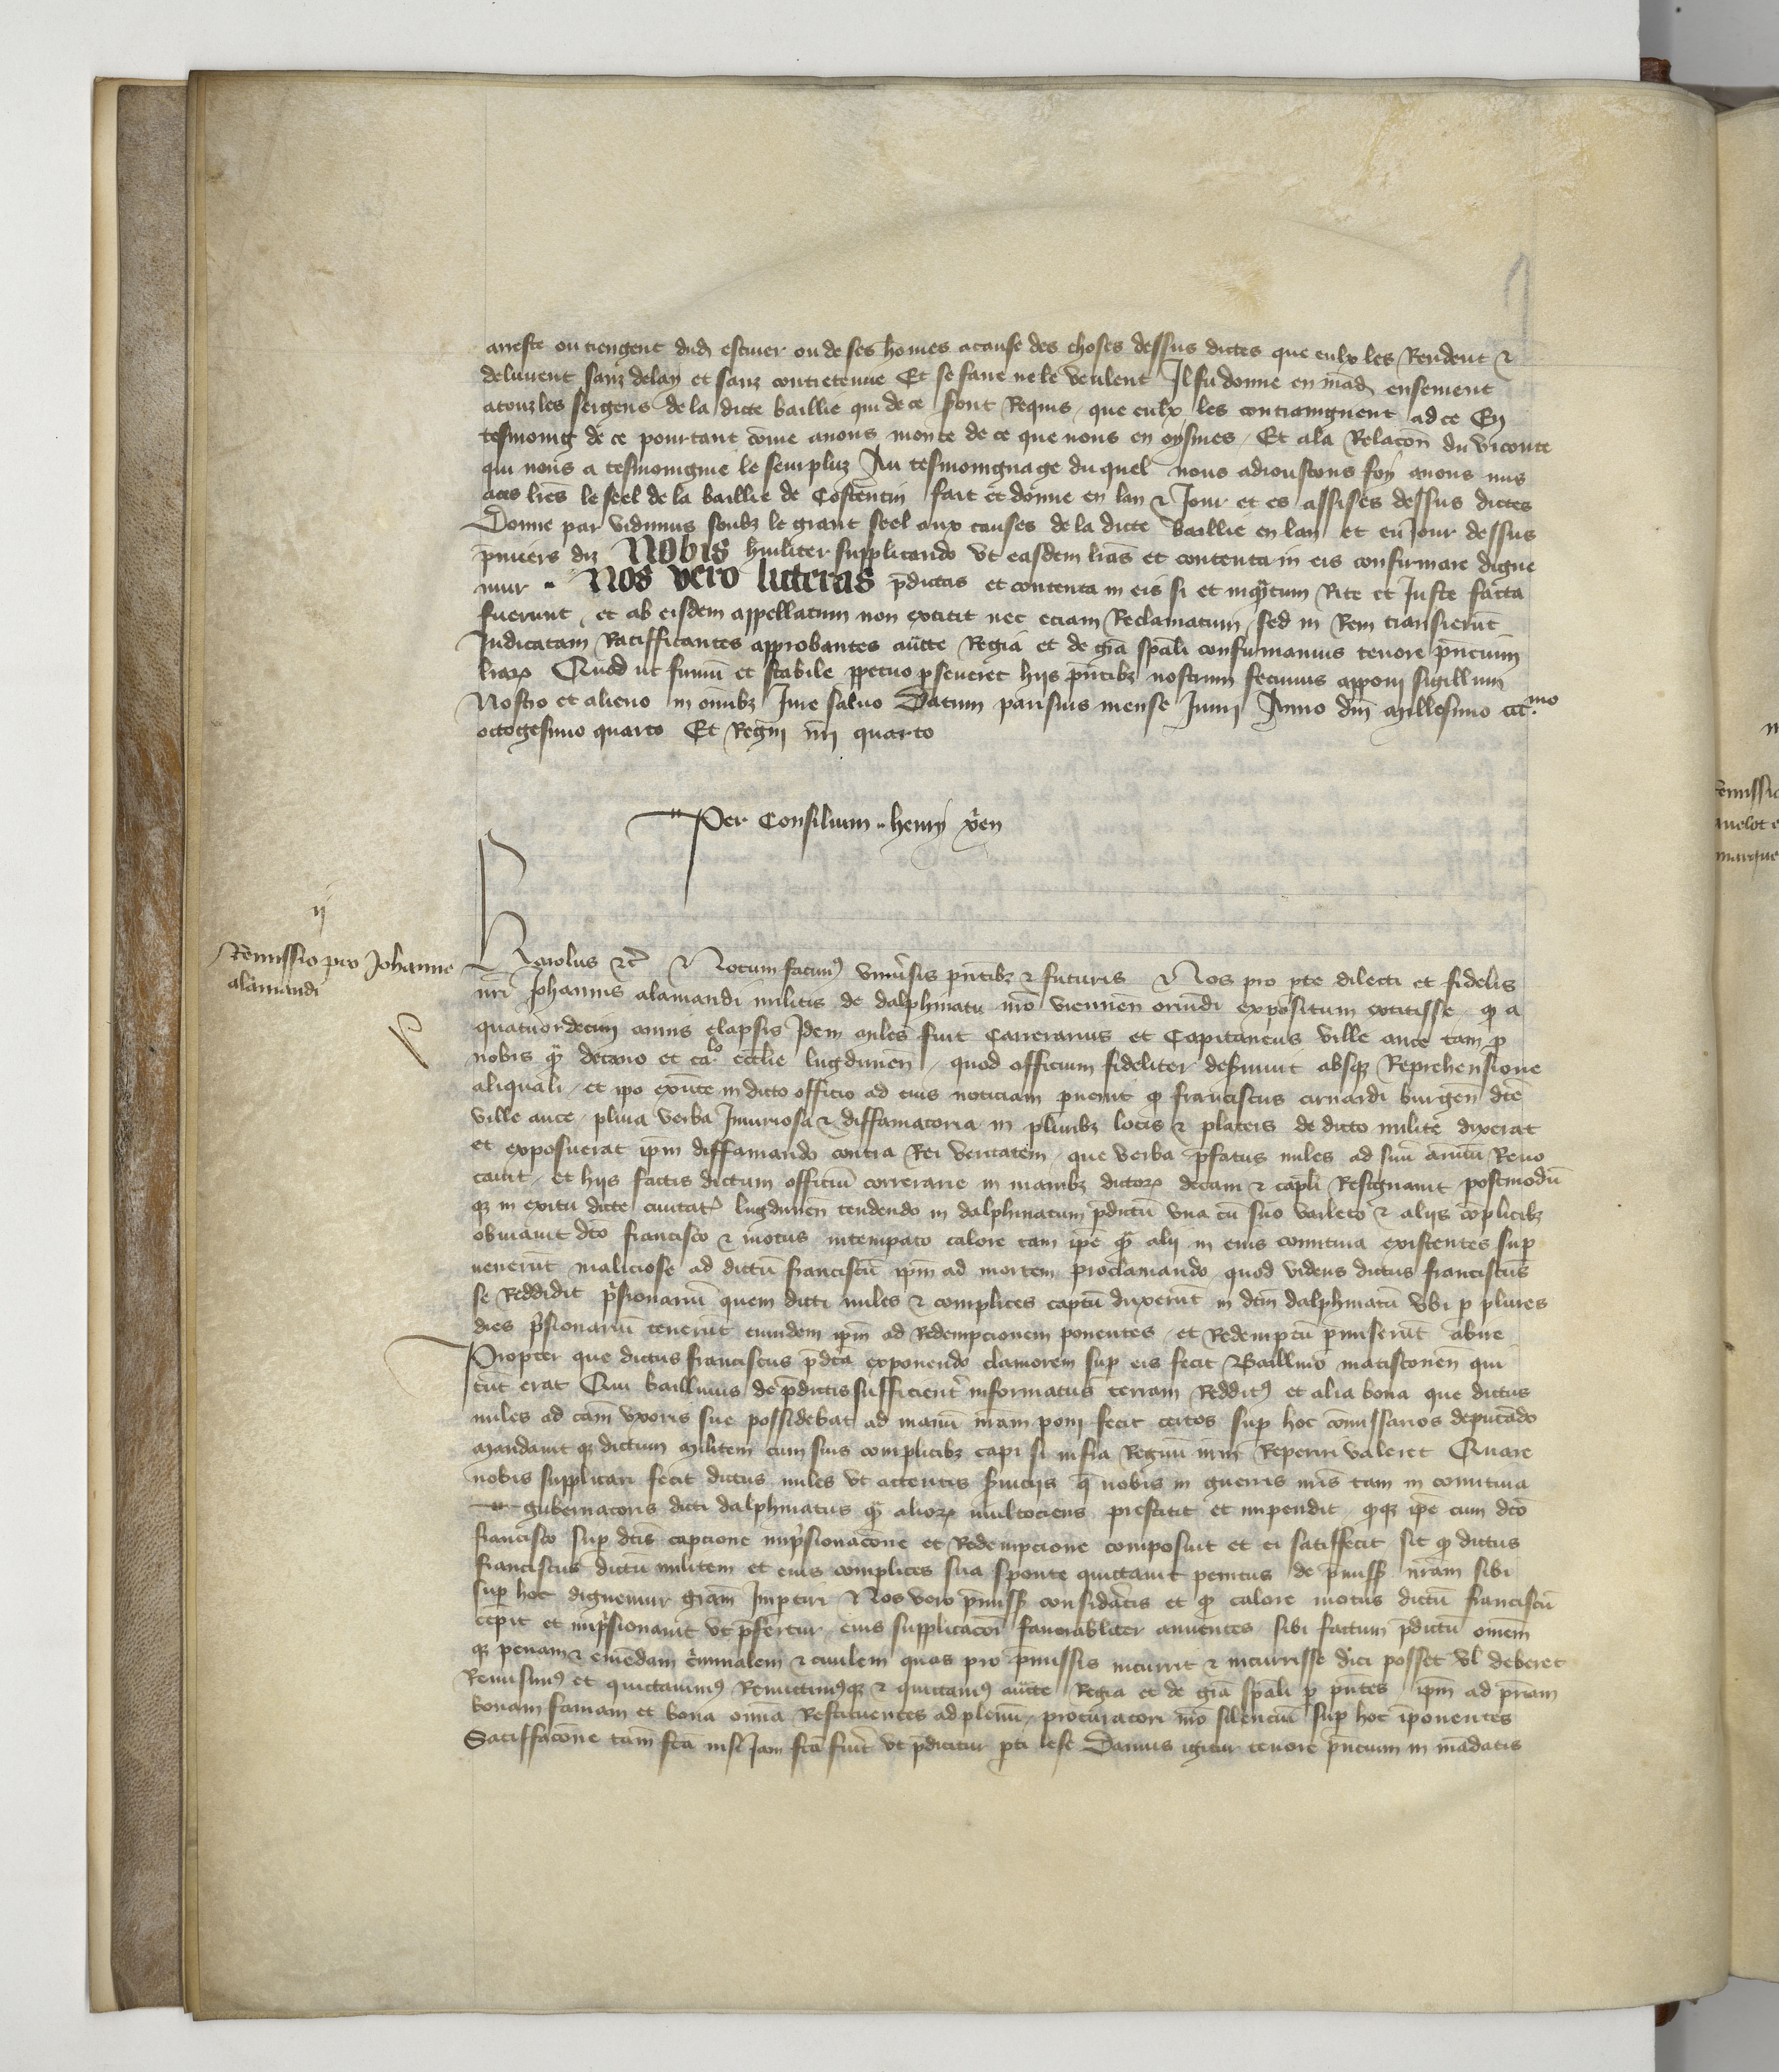 areste ou tiengent dud escuier ou de ses hōmes a cause des choses dessus dictes que eulx les Rendent ⁊
delivrent sanz delay et sanz contretenue Et se faire ne le veulent Il fu donne en mād ensement
a touz les sergens de la dicte baillie qui de ce sont Requis / que eulx les contraingnent ad ce En
tesmoing de ce pourtant cōme a nous monte de ce que nous en oysmes / Et a la Relacōn du viconte
qui nous a tesmoingnie le seurpluz Au tesmoingnage du quel nous adioustons foy avons mis
a ces lr̄es le seel de la baillie de Costentin fait et donne en lan ⁊ Jour et es assises dessus dictes
Donne par vidimus soubz le grant seel aux causes de la dicte baillie en lan et en Jour dessus
p̄miers diz Nobis hūiliter supplicando vt easdem lr̄as et contenta in eis confirmare digne
mur .. Nos vero litteras p̄dictas et contenta in eis si et inq̄ntum Rite et Juste facta
fuerunt, et ab eisdem appellatum non extitit nec eciam Reclamatum, sed in Rem transierūt
Judicatam Ratifficantes approbantes aūtte Regia et de grā sp̄ali confirmamus tenore p̄ncium
lr̄arꝝ Quod ut firmū et stabile ꝑpetuo ꝑseveret hijs p̄ntibꝫ nostrum fecimus apponi sigillum
Nostro et alieno in om̄ibꝫ Jure salvo Datum parisius mense Junij Anno dn̄i Millesimo ccc.mo
octogesimo quarto Et Regni nr̄i quarto
Per Consilium .. henry
ij
Remissio pro Johanne
alamandi
Karolus ⁊c̄ Notum facimꝰ vniūsis p̄ntibꝫ ⁊ futuris Nos pro ꝑte dilecti et fidelis
nr̄i Johannis alamandi militis de dalphinatu nr̄o viennen̄ oriūdi expositum extitisse ꝙ a
quatuordecim annis elapsis Idem miles fuit Carrerarius et Capitaneus ville ance tam ꝓ
nobis q̄ꝫ decano et ca.lo eccl̄ie lugdunen̄ / quod officium fideliter deservivit absqꝫ Reprehensione
aliquali / et ip̄o exn̄te in dicto officio ad eius noticiam ꝑvenit ꝙ franciscus burgen̄ dc̄e
ville ance / plura verba Iniuriosa ⁊ diffamatoria in pluribꝫ locis ⁊ plateis de dicto milite dixerat
et exposuerat ip̄m diffamando contra Rei veritatem / que verba p̄fatus miles ad suū animū Revo
cavit / et hijs factis dictum officiū correrarie in manibꝫ dictorꝝ decani ⁊ cap̄li Resignavit / postmodū
qꝫ in exitu dicte civitatꝭ lugdunen̄ tendendo in dalphinatum p̄dictū vna cū suo varleto ⁊ alijs cōplicibꝫ
obviavit dc̄o francisco ⁊ motus intemꝑato calore tam ip̄e q̄ꝫ alij in eius comitiva existentes suꝑ
venerūt maliciose ad dictū franciscū ip̄m ad mortem proclamando / quod videns dictus franciscus
se Reddidit p̄sionariū quem dicti miles ⁊ complices captū duxerūt in dc̄m dalphinatū vbi ꝑ plures
dies p̄sionariū tenerūt eundem ip̄m ad Redempcionem ponentes / et Redemptū ꝑmiserūt abire
Propter que dictus franciscus p̄dc̄a exponendo clamorem suꝑ eis fecit Baillivo matisconen̄ qui
tūc erat Qui baillivus de p̄dictis sufficient̄ informatus terram Redditꝰ et alia bona que dictus
miles ad cām vxoris sue possidebat ad manū nr̄am poni fecit certos suꝑ hoc cōmissarios deputādo
mandavit qꝫ dictum militem cum suis complicibꝫ capi si infra Regnū nr̄m Reperiri valeret Quare
nobis supplicari fecit dictus miles vt attentis s̄vicijs q̄ nobis in guerris nr̄is tam in comitiva
gubernatoris dicti dalphinatus q̄ꝫ aliorꝝ multociens prestitit et impendit / ꝙqꝫ ip̄e cum dc̄o
francisco suꝑ dc̄is capcione imp̄sionacōne et Redempcione composuit et ei satiffecit sic ꝙ dictus
franciscus dictū militem et eius complices sua sponte quittavit penitus de p̄miss̄ nr̄am sibi
suꝑ hoc dignemur grām Imꝑtiri Nos vero p̄miss̄ considatis et ꝙ calore motus dictū franciscū
cepit et imp̄sionavit vt p̄fertur / eius supplicacōi favorabiliter annuentes / sibi factum p̄dictū om̄em
qꝫ penam ⁊ emēdam c̄minalem ⁊ civilem quas pro p̄missis incurrit ⁊ incurrisse dici posset vl̄ deberet
Remisimꝰ et quictavimꝰ Remittimꝰqꝫ ⁊ quittamꝰ aūtte Regia et de grā sp̄ali ꝑ p̄ntes ip̄m ad p̄riam
bonam famam et bona om̄ia Restituentes ad plenū / procuratori nr̄o silenciū suꝑ hoc īponentes
Satiffacōne tam̄ fc̄a nisi Jam fc̄a fuit̄ vt p̄dicitur ꝑti lese Damus igitur tenore p̄ncium in mādatis